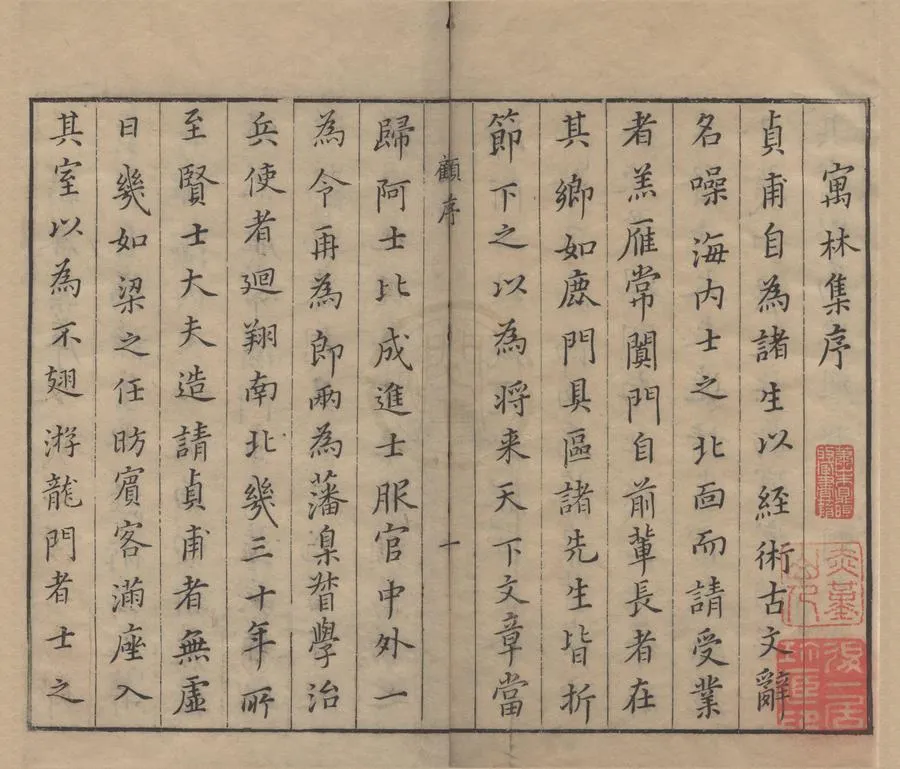 寓林集序
貞甫自為諸生以經術古文辭
名噪海内士之北面而請受業
者羔雁常闐門自前輩長者在
其鄉如鹿門具區諸先生皆折
節下之以為将来天下文章當
顧序
一
歸阿士比成進士服官中外一
為令再為郎兩為藩臬督學治
兵使者迴翔南北幾三十年所
至賢士大夫造請貞甫者無虛
日幾如梁之任昉賓客滿座入
其室以為不翅游龍門者士之